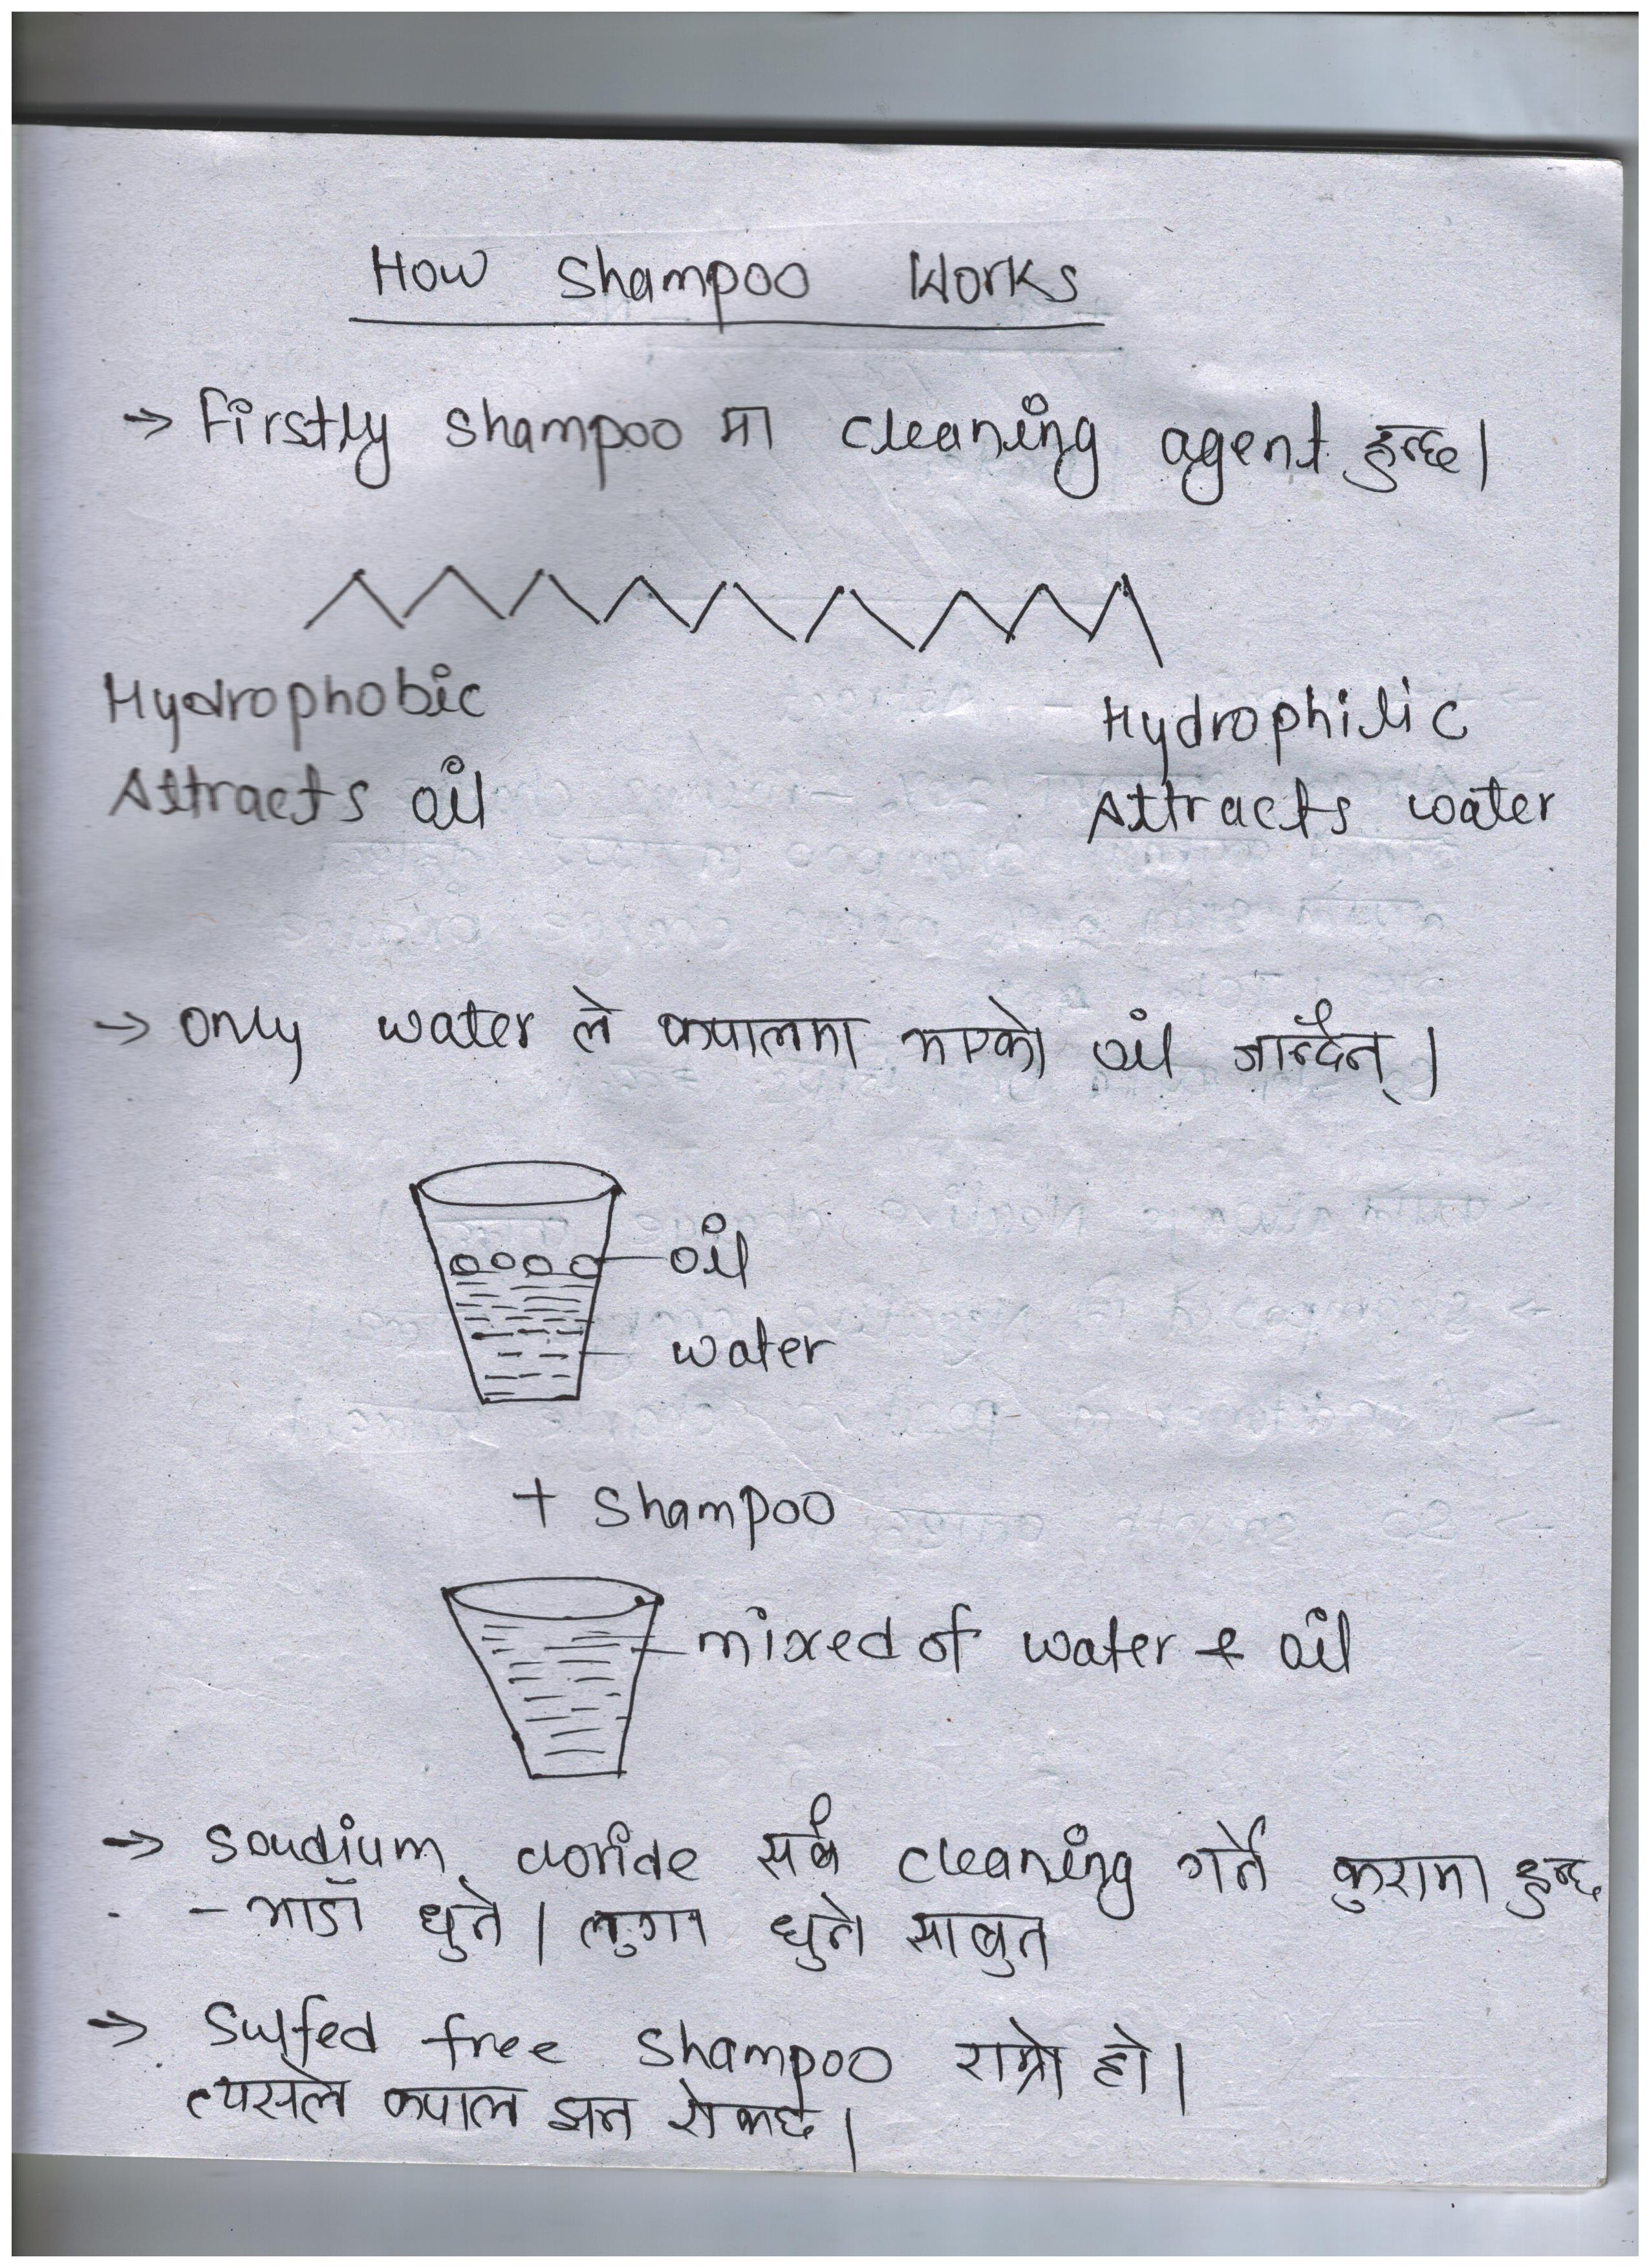 How Shampoo Works
→ Firstly Shampoo मा cleaning agent हुन्छ।
Hydrophobic
Attracts oil
Hydrophilic
Attracts water
→ only water ले कपालमा भएको oil जान्दैन्।
oil
water
+ Shampoo
mixed of water & oil
→ Soudium cloride सबै cleaning गर्ने कुरामा हुन्छ
- भाडाँ धुने। लुगा धुने साबुन
→ Sulfed free Shampoo राम्रो हो।
त्यसले कपाल झर्न रोक्छ।